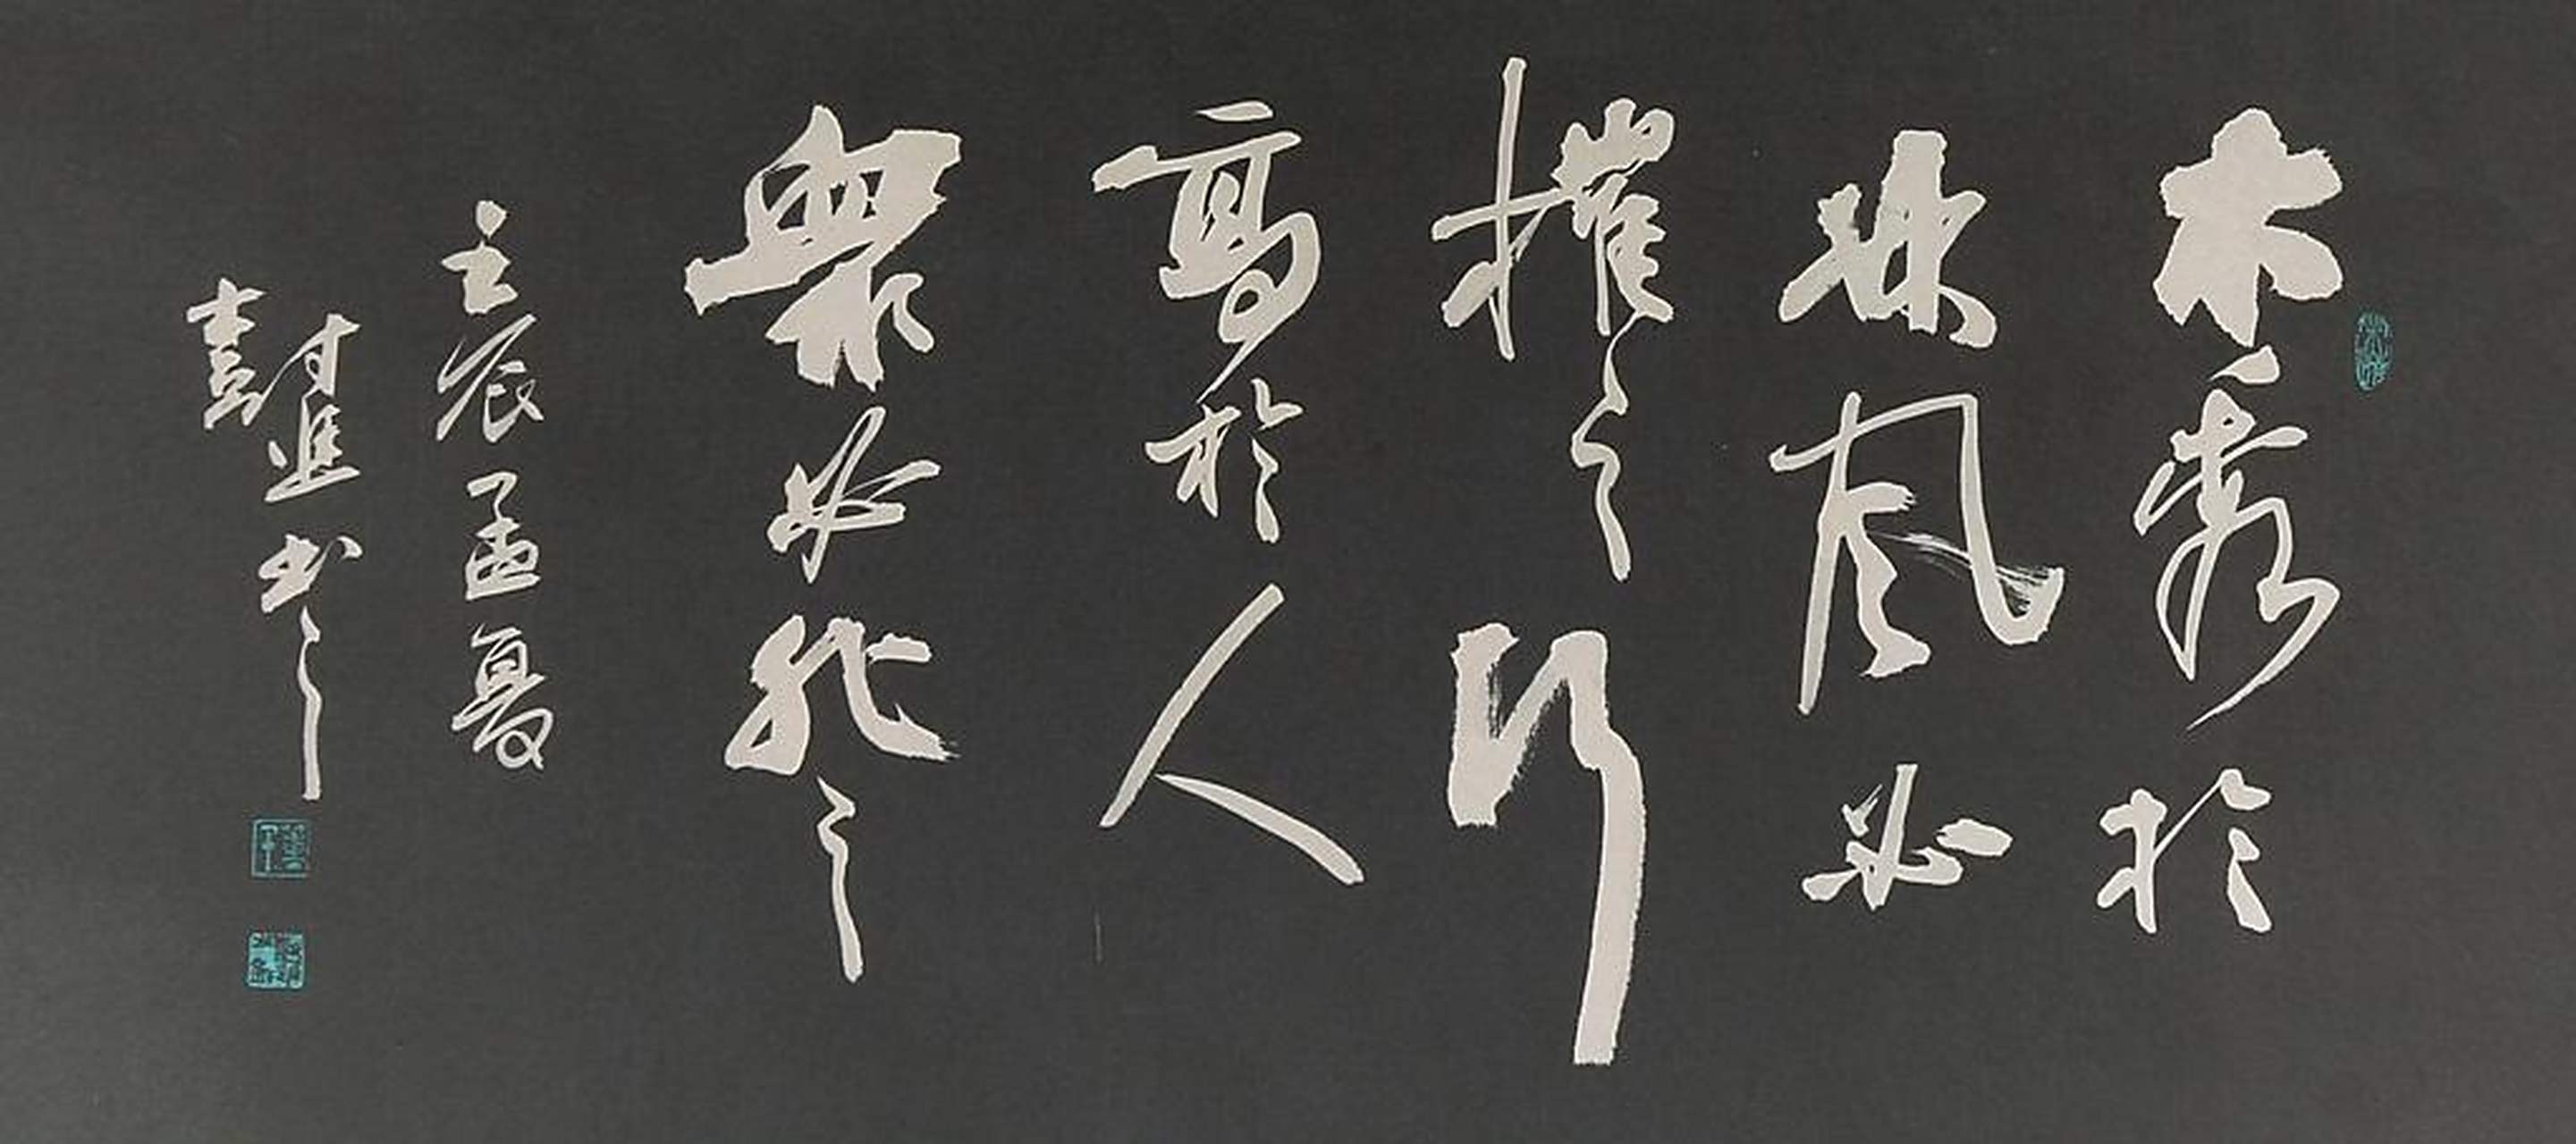 木秀於
林風必
摧之行
高於人
衆必非之
壬辰孟夏
進书之